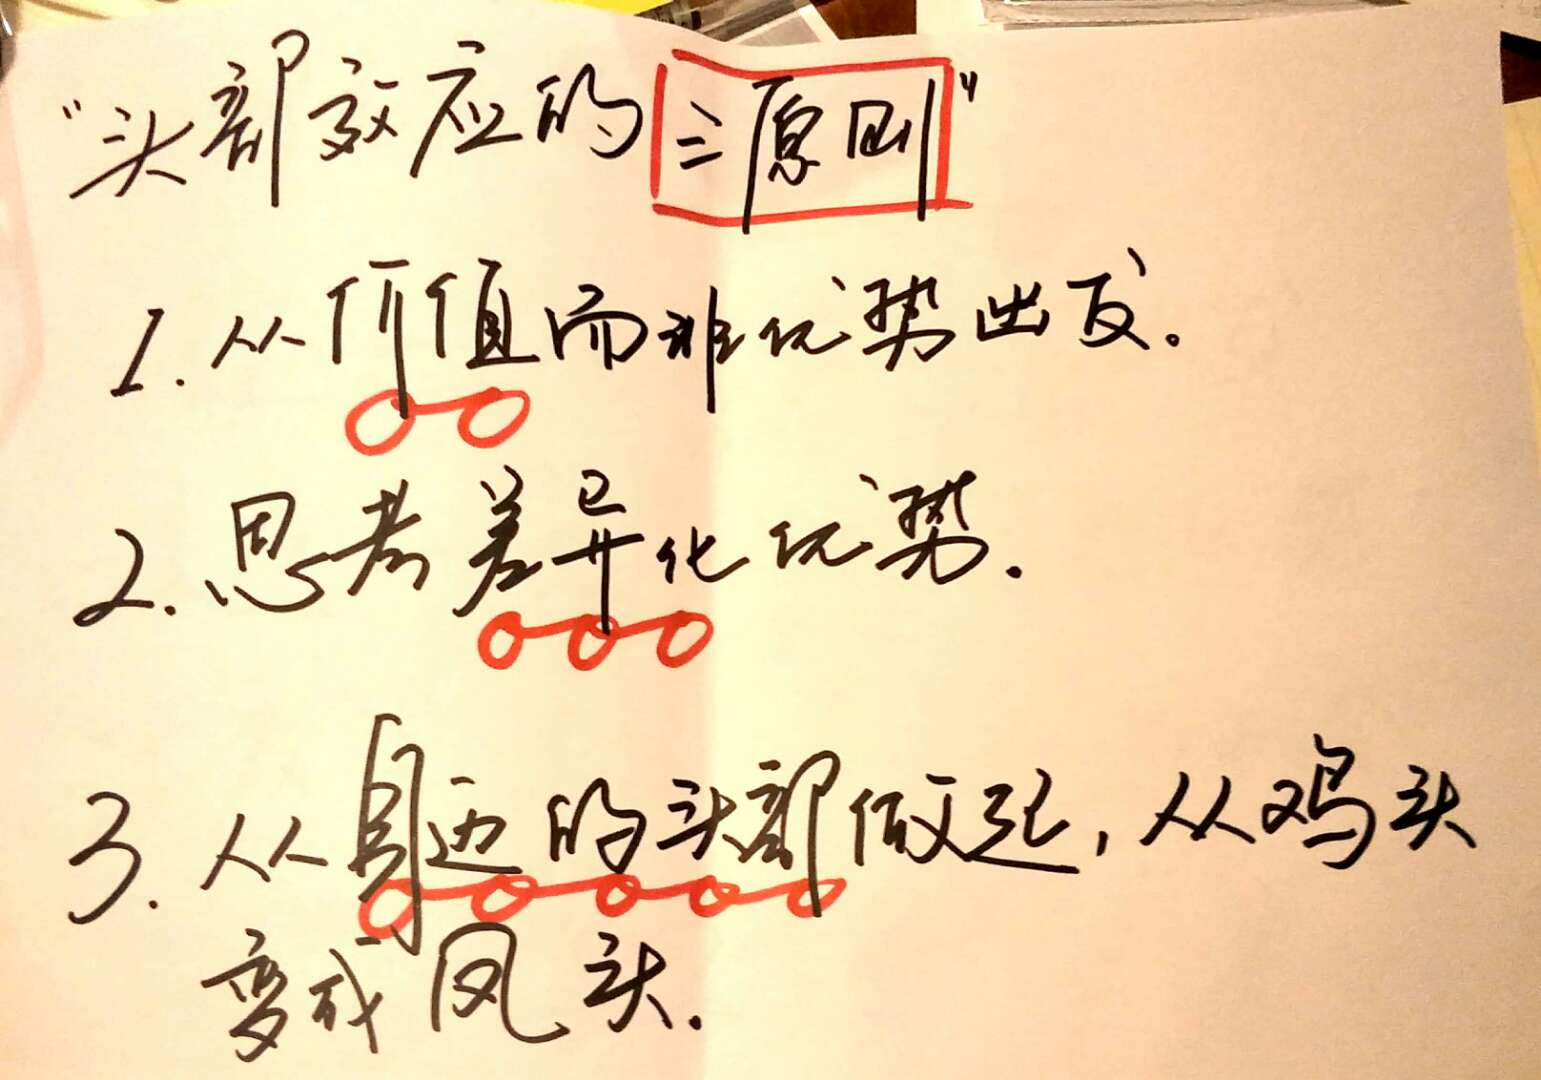 “头部效应的三原则”
1.从价值而非优势出发.
2.思考差异化优势.
3.从身边的头部做起,从鸡头
变成凤头.